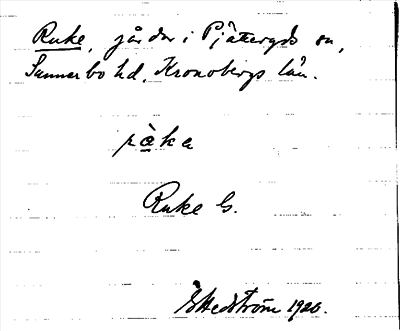 Ruke, gårdar i Pjätteryds sn,
Sunnerbo hd, Kronobergs län.
rɐ̀ka
Ruke G.
Hedström 1926.